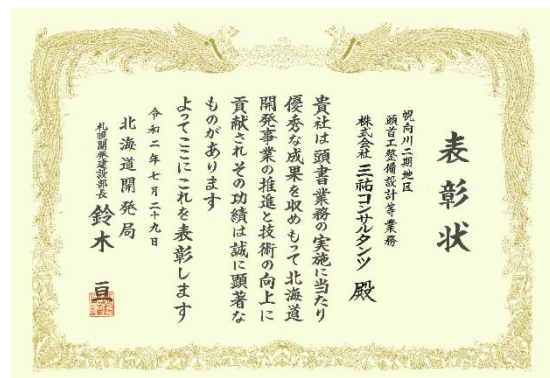 表彰状
幌向川二期地区
頭首工整備設計等業務
株式会社 三祐コンサルタンツ 殿
貴社は頭書業務の実施に当たり
優秀な成果を収めもって北海道
開発事業の推進と技術の向上に
貢献されその功績は誠に顕著な
ものがあります
よってここにこれを表彰します
令和二年七月二十九日
北海道開発局
札幌開発建設部長 鈴木 亘